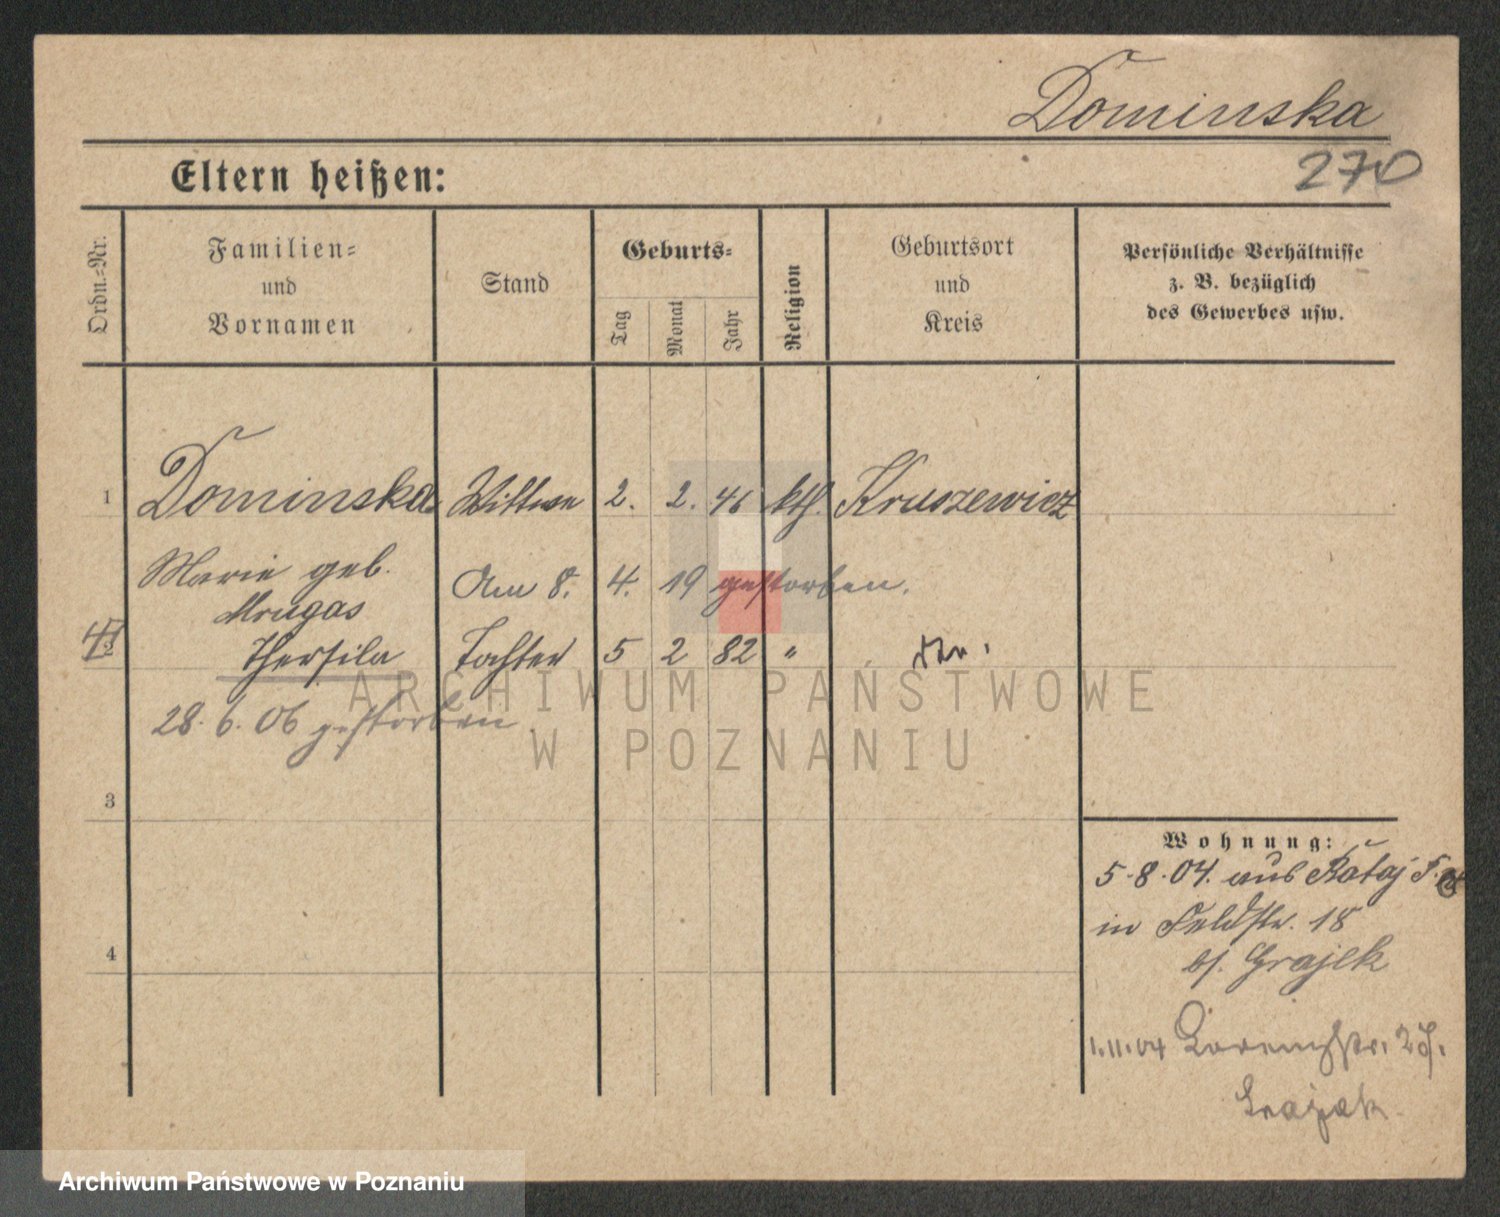 Dominska
270
Eltern heißen:
Ordn.-Nr.
Familien-
und
Vornamen
Stand
Geburts-
Tag
Monat
Jahr
Religion
Geburtsort
und
Kreis
Persönliche Verhältnisse
z. B. bezüglich
des Gewerbes usw.
1 Dominska Wittwe 2. 2. 46 kth. Kruszewicz
Marie geb. Am 8. 4. 19 gestorben.
Mrugas
2 Thersila Tochter 5 2 82 "
28. 6. 06 gestorben
3
4
Wohnung:
5.8.04. aus Rataj
in Feldstr. 18
bj. Grajek
1.11.04 27.
Grajek
ARCHIWUM PAŃSTWOWE
W POZNANIU
Archiwum Państwowe w Poznaniu